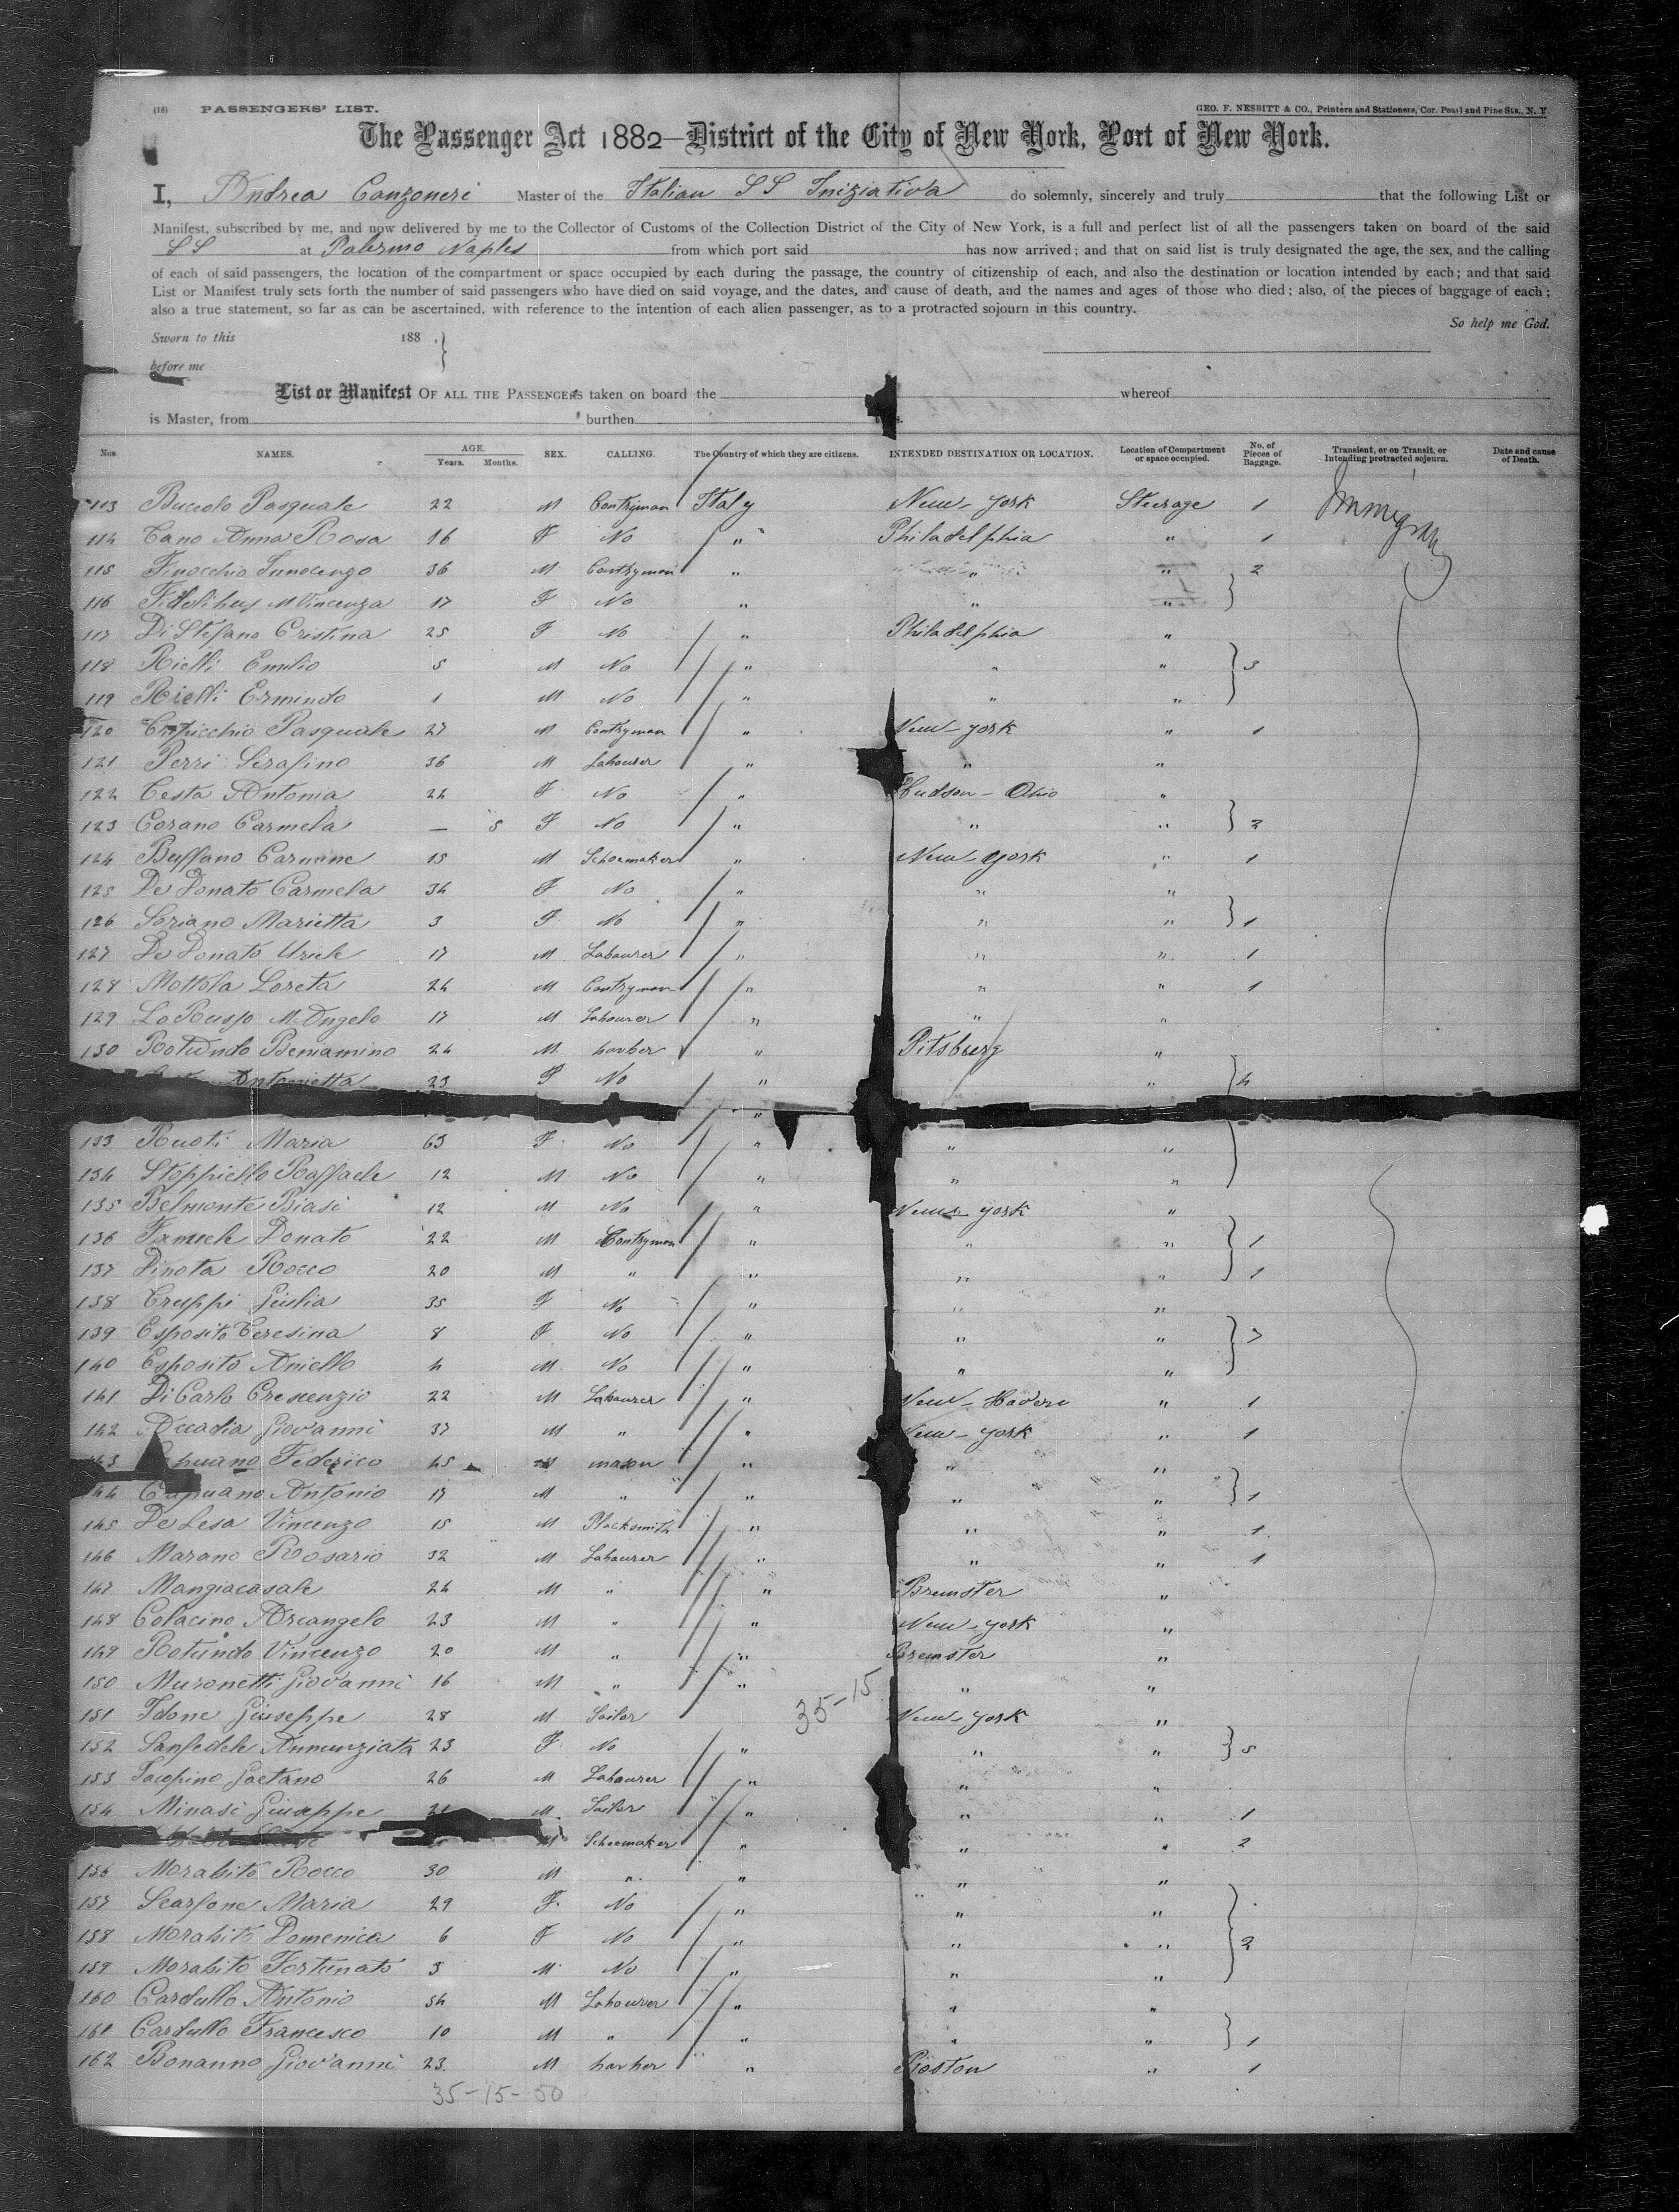 (18) PASSENGERS' LIST. GEO. F. NESBITT & CO., Printers and Stationers, Cor. Pearl and Pine Sts., N. Y.
The Passenger Act 1882—District of the City of New York, Port of New York.
I, Andrea Canzoneri Master of the Italian SS Iniziativa do solemnly, sincerely and truly that the following List or
Manifest, subscribed by me, and now delivered by me to the Collector of Customs of the Collection District of the City of New York, is a full and perfect list of all the passengers taken on board of the said
SS at Palermo Naples from which port said has now arrived; and that on said list is truly designated the age, the sex, and the calling
of each of said passengers, the location of the compartment or space occupied by each during the passage, the country of citizenship of each, and also the destination or location intended by each; and that said
List or Manifest truly sets forth the number of said passengers who have died on said voyage, and the dates, and cause of death, and the names and ages of those who died; also, of the pieces of baggage of each;
also a true statement, so far as can be ascertained, with reference to the intention of each alien passenger, as to a protracted sojourn in this country.
So help me God.
Sworn to this 188 .
before me
List or Manifest OF ALL THE PASSENGERS taken on board the whereof
is Master, from burthen
Nos NAMES. AGE. Years. Months. SEX. CALLING. The Country of which they are citizens. INTENDED DESTINATION OR LOCATION. Location of Compartment or space occupied. No. of Pieces of Baggage. Transient, or on Transit, or Intending protracted sojourn. Date and cause of Death.
113 Buccolo Pasquale 22 M Contryman Italy New-York Steerage 1
114 Cano Anna Rosa 16 F No " Philadelphia " 1
115 Finocchio Innocenzo 36 M Contryman " " " 2
116 M Vincenza 17 F No " " "
117 Di Stefano Cristina 25 F No " Philadelphia "
118 Rielli Emilio 5 M No " " " 3
119 Rielli Ermindo 1 M No " " "
120 Pasquale 27 M Contryman " New-York " 1
121 Perri Serafino 36 M Labourer " " "
122 Testa Antonia 24 F No " Hudson-Ohio "
123 Corano Carmela — 5 F No " " " 2
124 Buffano Carmine 15 M Schoemaker " New-York " 1
125 De Donato Carmela 34 F No " " "
126 Soriano Marietta 3 F No " " " 1
127 De Donato 17 M Labourer " " " 1
128 Mottola Loreta 24 M Contryman " " " 1
129 Lo Russo M. Angelo 17 M Labourer " " "
130 Rotundo Beniamino 24 M barber " Pitsberg "
Antonietta 23 F No " " 4
"
133 Ruoti Maria 63 F No " " "
134 Stoppiello Raffaele 12 M No " " "
135 Belmonte Biasi 12 M No " New-York "
136 Donato 22 M Contryman " " " 1
137 Pinota Rocco 20 M " " " " 1
138 Cruppi Giulia 35 F No " " "
139 Esposito Teresina 8 F No " " " 3
140 Esposito Aniello 4 M No " " "
141 Di Carlo Crescenzio 22 M Labourer " New-Haven " 1
142 Accadia Giovanni 37 M " " New-York " 1
Capuano Federico 45 M mason " " "
144 Capuano Antonio 17 M " " " " 1
145 De Lesa Vincenzo 15 M Blacksmith " " " 1
146 Marano Rosario 32 M Labourer " " " 1
147 Mangiacasale 24 M " " Brewster "
148 Colacino Arcangelo 23 M " " New-York "
149 Rotundo Vincenzo 20 M " " Brewster "
150 Muronetti Giovanni 16 M " " " "
151 Idone Giuseppe 28 M Sailor 35-15 New-York "
152 Sanfedele Annunziata 23 F No " " " 5
153 Iacopino Gaetano 26 M Labourer " " "
154 Minasi Giuseppe 21 M Sailor " " " 1
M Schoemaker " " " 2
156 Morabito Rocco 30 M " " " "
157 Scarfone Maria 29 F No " " "
158 Morabito Domenica 6 F No " " " 2
159 Morabito Fortunato 3 M No " " "
160 Cardullo Antonio 34 M Labourer " " "
161 Cardullo Francesco 10 M " " " " 1
162 Bonanno Giovanni 23 M barber " Boston " 1
35-15-50